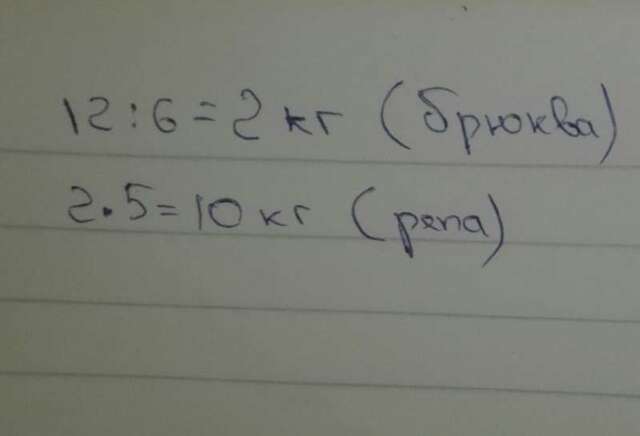 12:6=2кг (брюква)
2·5=10кг (репа)